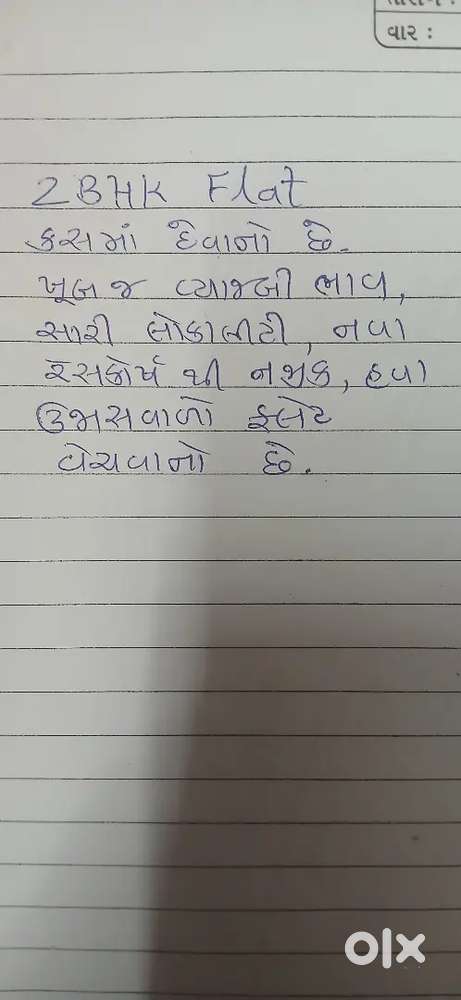 વાર :
2BHK Flat
કસમાં દેવાનો છે.
ખૂબ જ વ્યાજબી ભાવ,
સારી લોકાલીટી, નવા
રેસકોર્ષ થી નજીક, હવા
ઉજાસવાળો ફ્લેટ
વેચવાનો છે.
olx